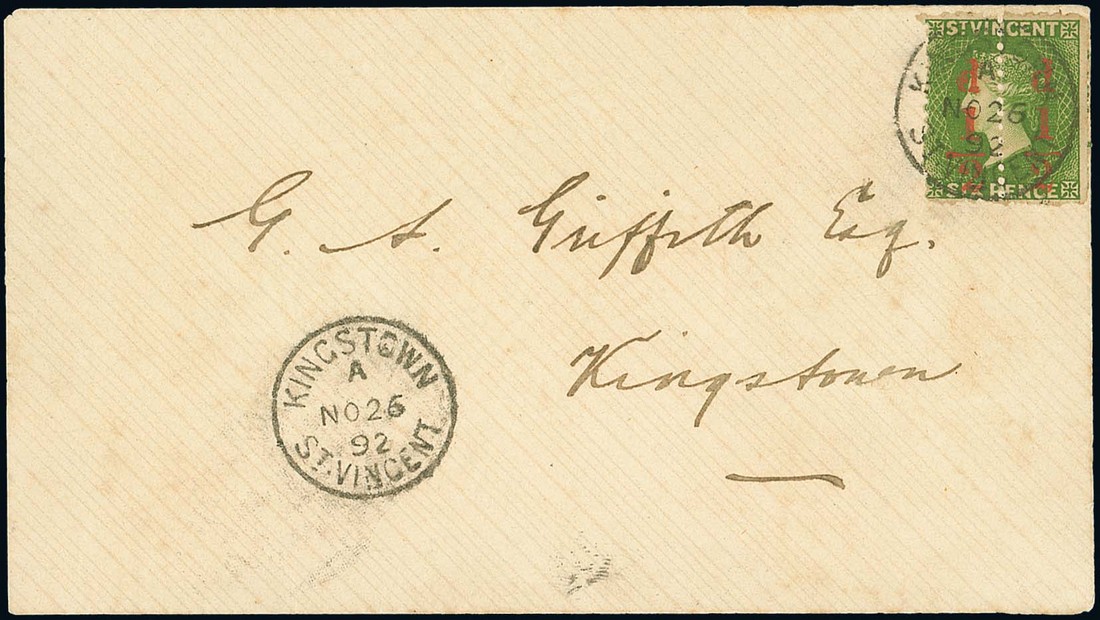 ST VINCENT
A
NO 26
92
d d
1 1
2 2
SIX PENCE
G. A. Griffith Esq.
Kingstown
KINGSTOWN
A
NO 26
92
ST. VINCENT